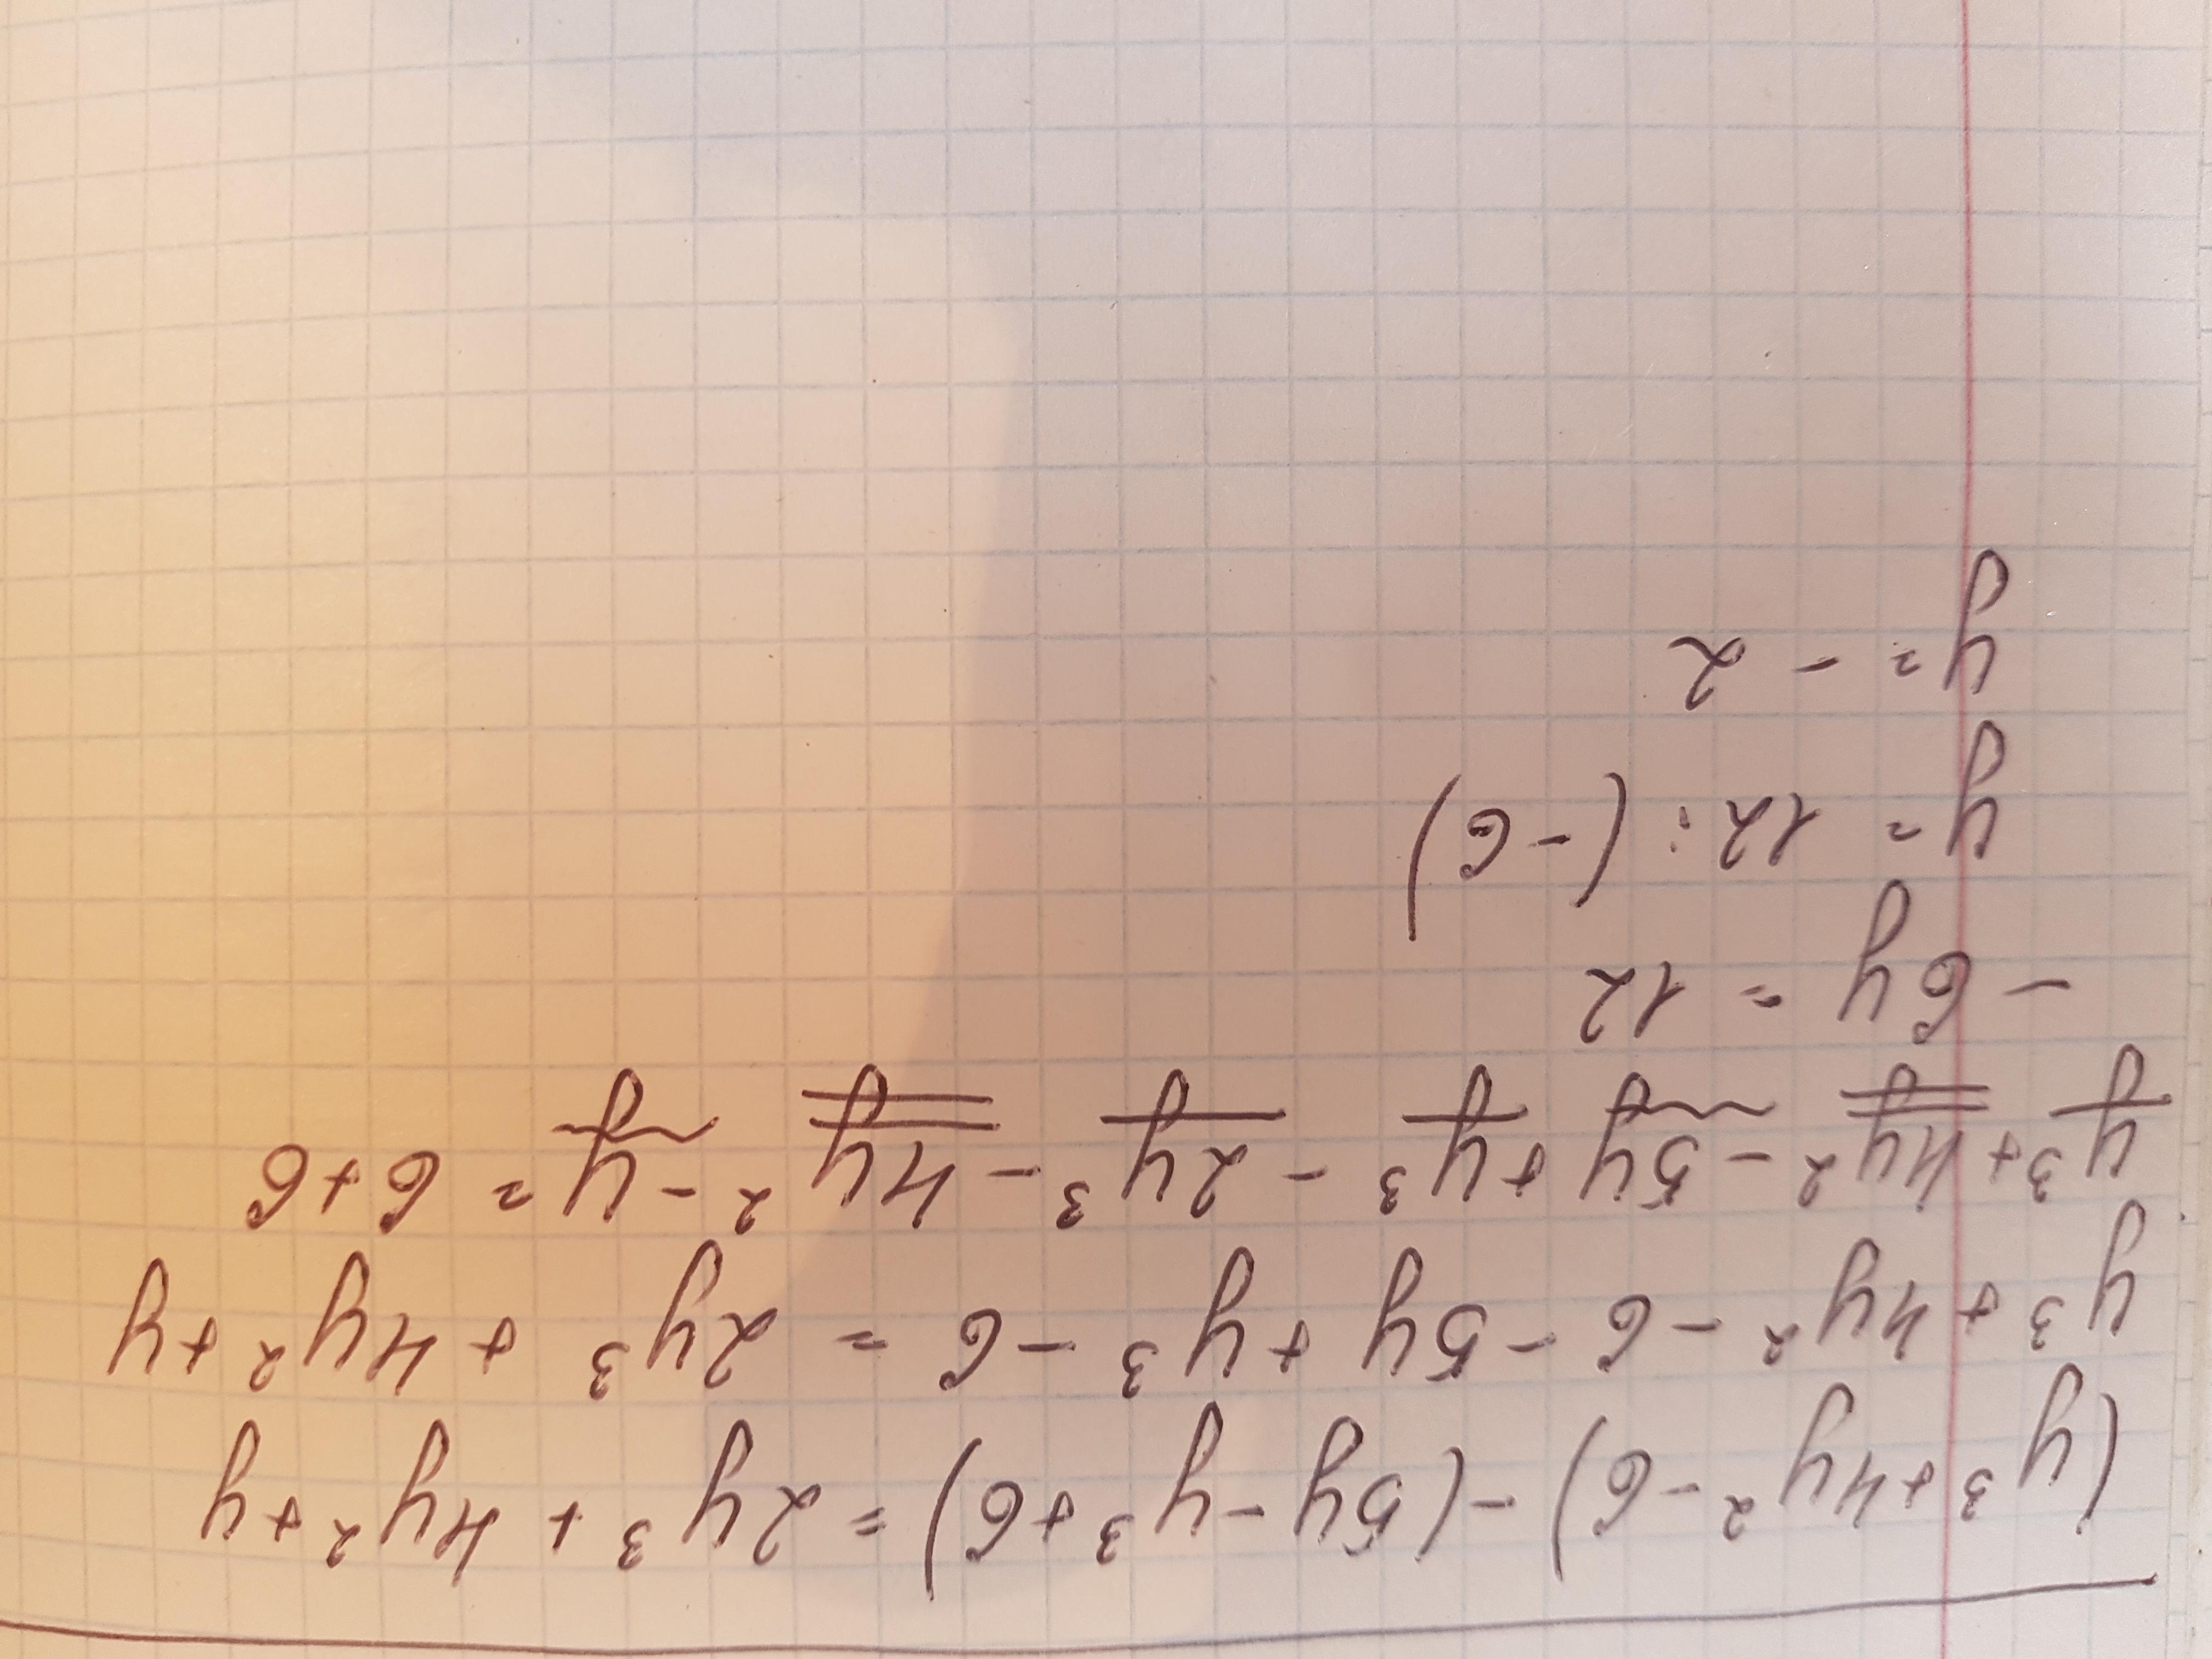 (y³+4y²-6)-(5y-y³+6)=2y³+4y²+y
y³+4y²-6-5y+y³-6=2y³+4y²+y
y³+4y²-5y+y³-2y³-4y²-y=6+6
-6y=12
y=12:(-6)
y=-2